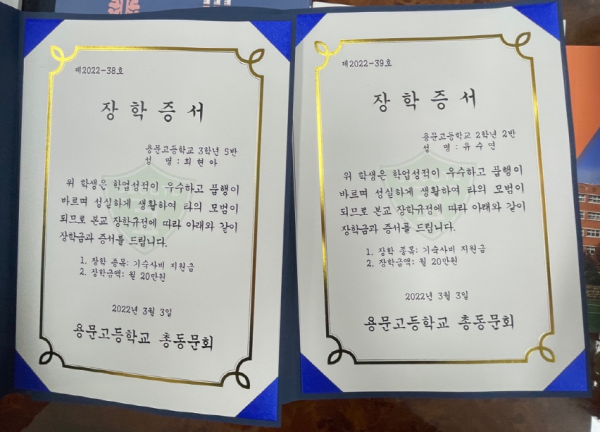 제2022-38호
장 학 증 서
용문고등학교 3학년 5반
성 명 : 최 현 아
위 학생은 학업성적이 우수하고 품행이
바르며 성실하게 생활하여 타의 모범이
되므로 본교 장학규정에 따라 아래와 같이
장학금과 증서를 드립니다.
1. 장학 종목: 기숙사비 지원금
2. 장학금액: 월 20만원
2022년 3월 3일
용문고등학교 총동문회
제2022-39호
장 학 증 서
용문고등학교 2학년 2반
성 명 : 유 수 연
위 학생은 학업성적이 우수하고 품행이
바르며 성실하게 생활하여 타의 모범이
되므로 본교 장학규정에 따라 아래와 같이
장학금과 증서를 드립니다.
1. 장학 종목: 기숙사비 지원금
2. 장학금액: 월 20만원
2022년 3월 3일
용문고등학교 총동문회